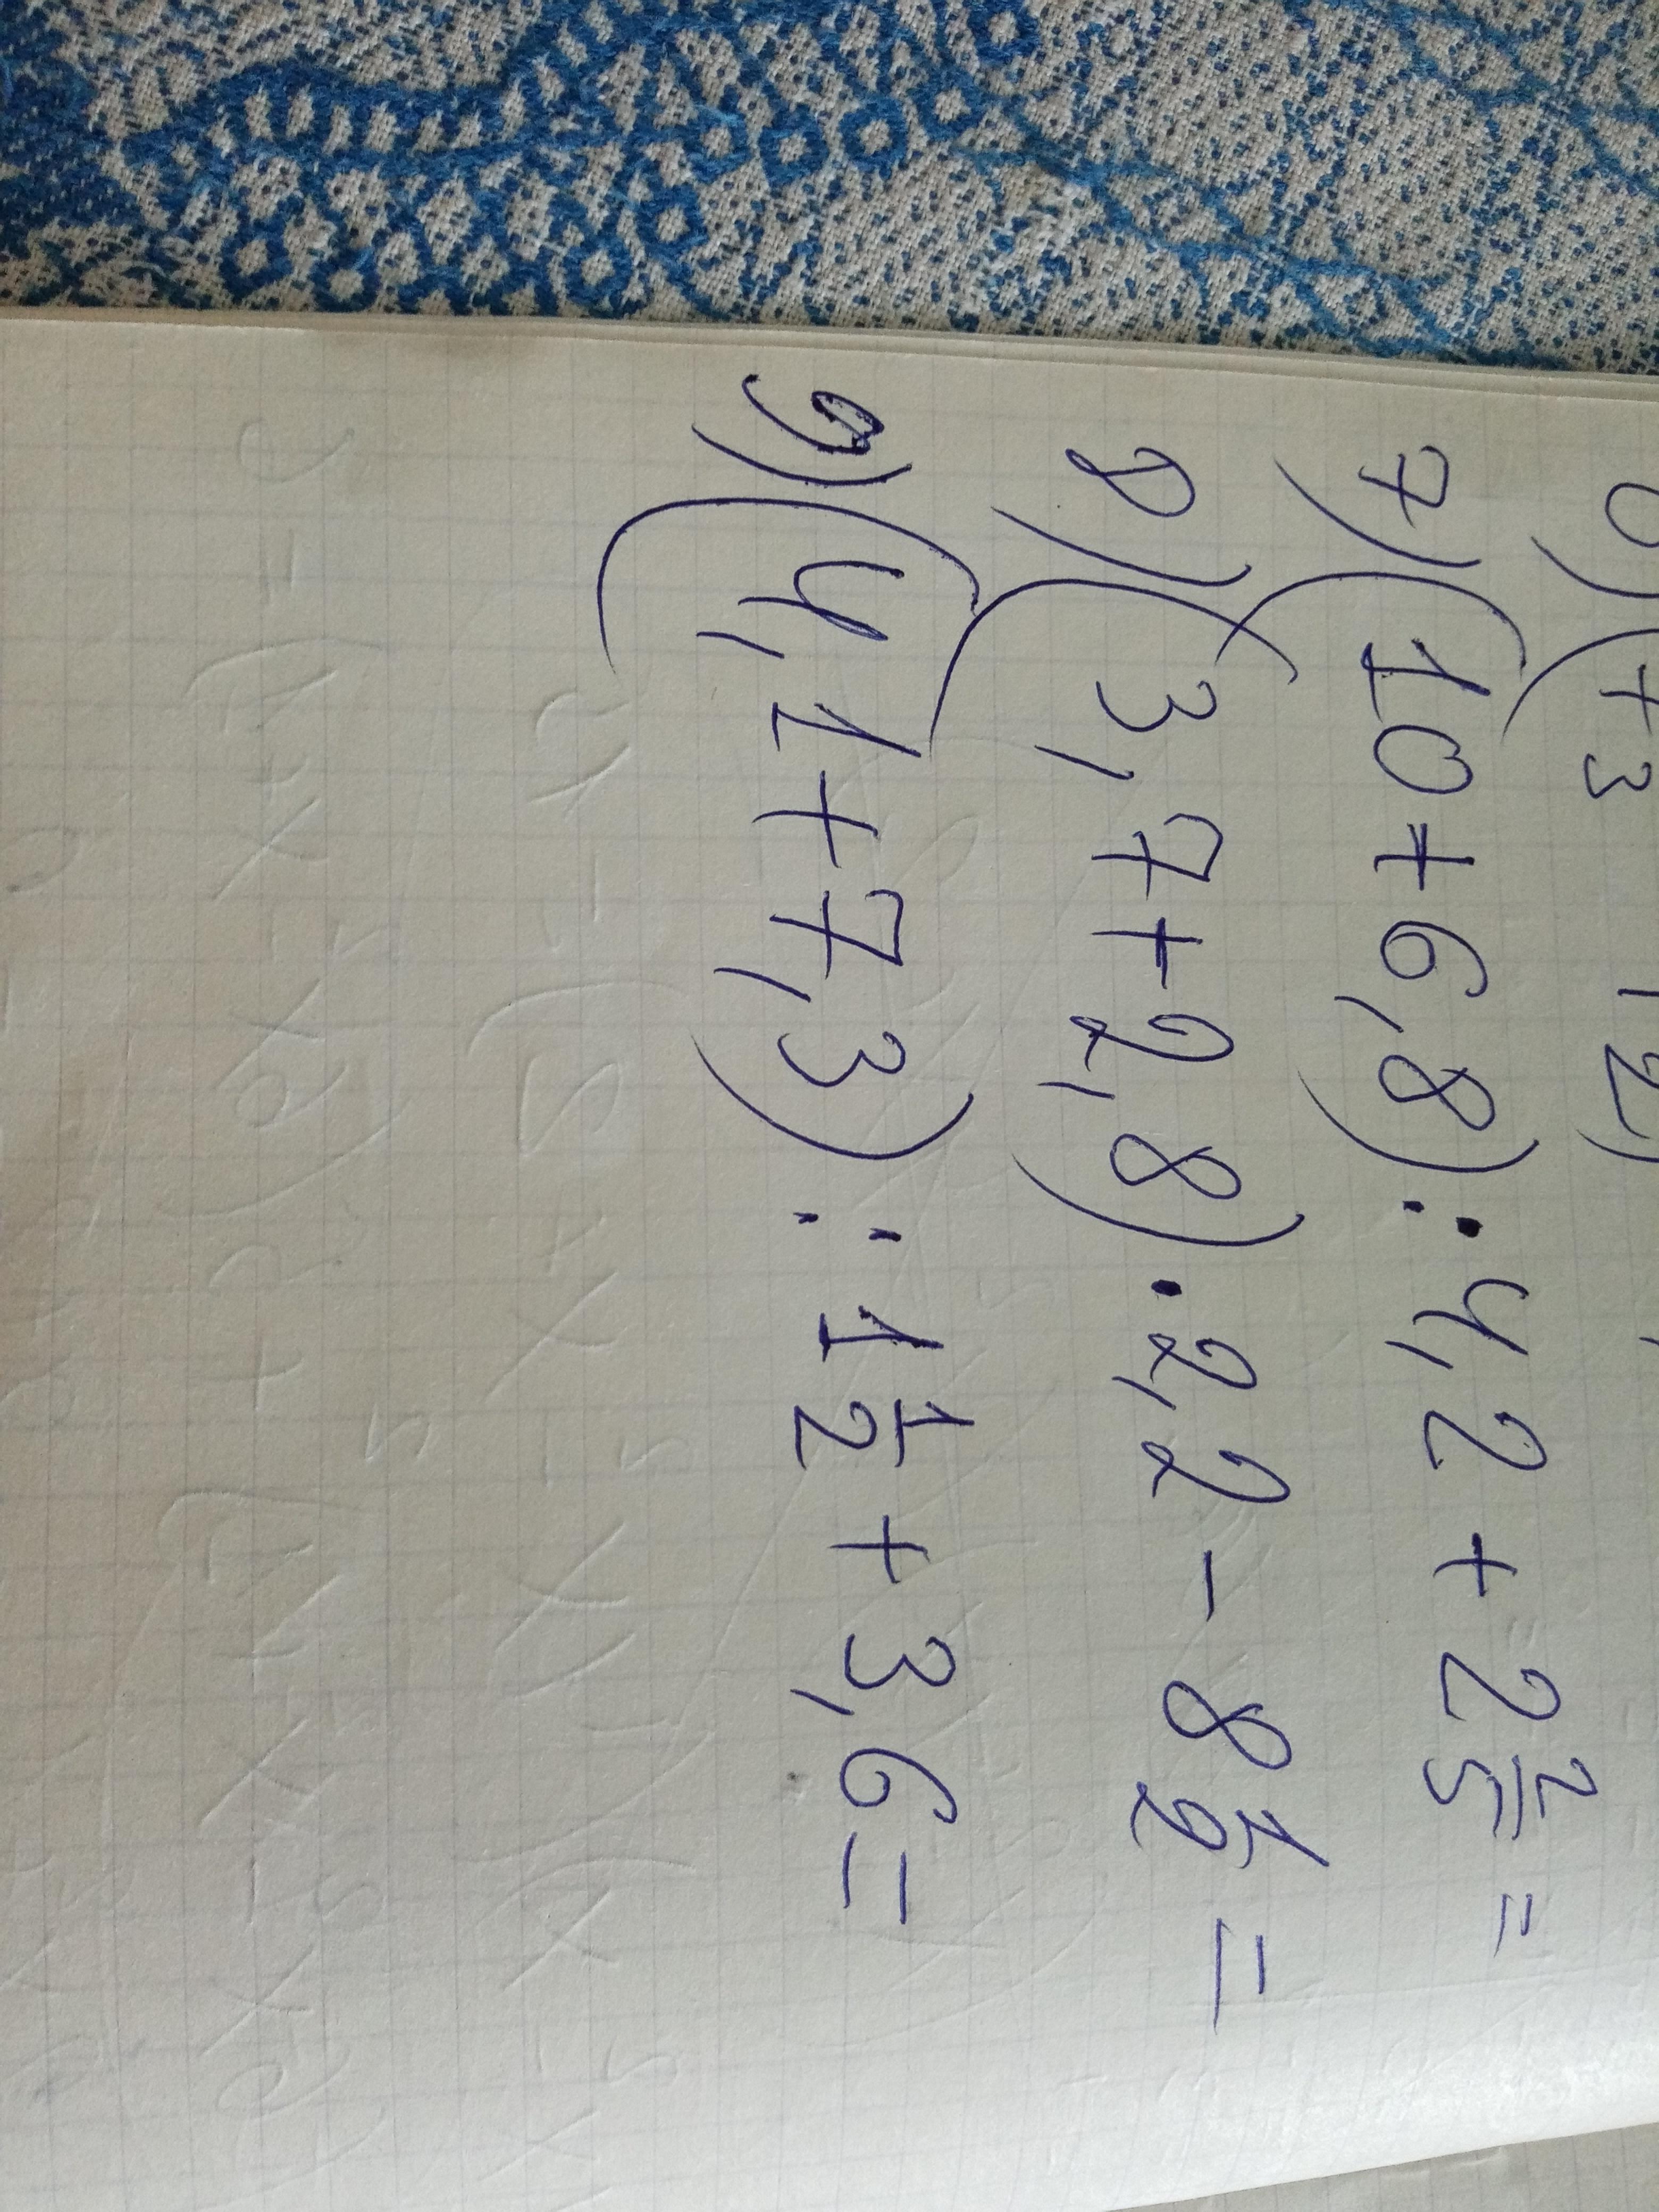 7) (10+6,8):4,2+2 2/5=
8) (3,7+2,8)·2,2-8 1/2=
9) (4,1+7,3):1 1/2+3,6=